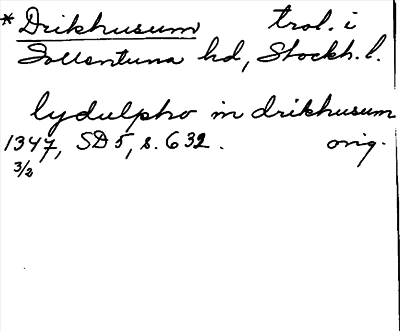 *Drikhusum trol. i
Sollentuna hd, Stockh. l.
lydulpho in drikhusum
1347, SD 5, s. 632. orig.
3/2